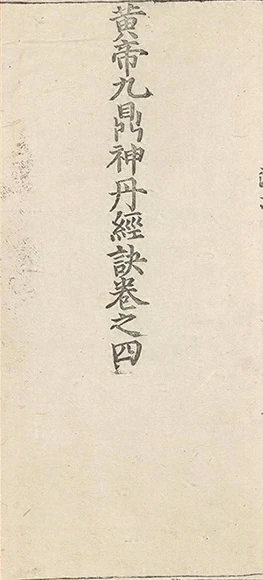 黃帝九鼎神丹經訣卷之四